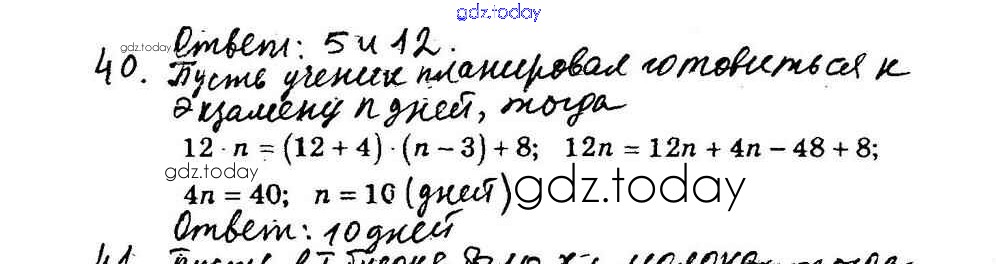 gdz.today
Ответ: 5 и 12.
gdz.today
40. Пусть ученик планировал готовиться к
экзамену n дней, тогда
12 · n = (12 + 4) · (n − 3) + 8; 12n = 12n + 4n − 48 + 8;
gdz.today
4n = 40; n = 10 (дней) gdz.today
Ответ: 10 дней
41. Пусть в I